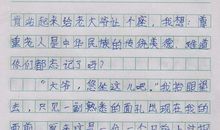 贵站起来给老大爷让个座。我想：尊
重老人是中华民族的传统美德，难道
你们都忘记了吗？
“大爷，您坐这儿吧。”我抬眼望
去，只见一副熟悉的面孔出现在我的